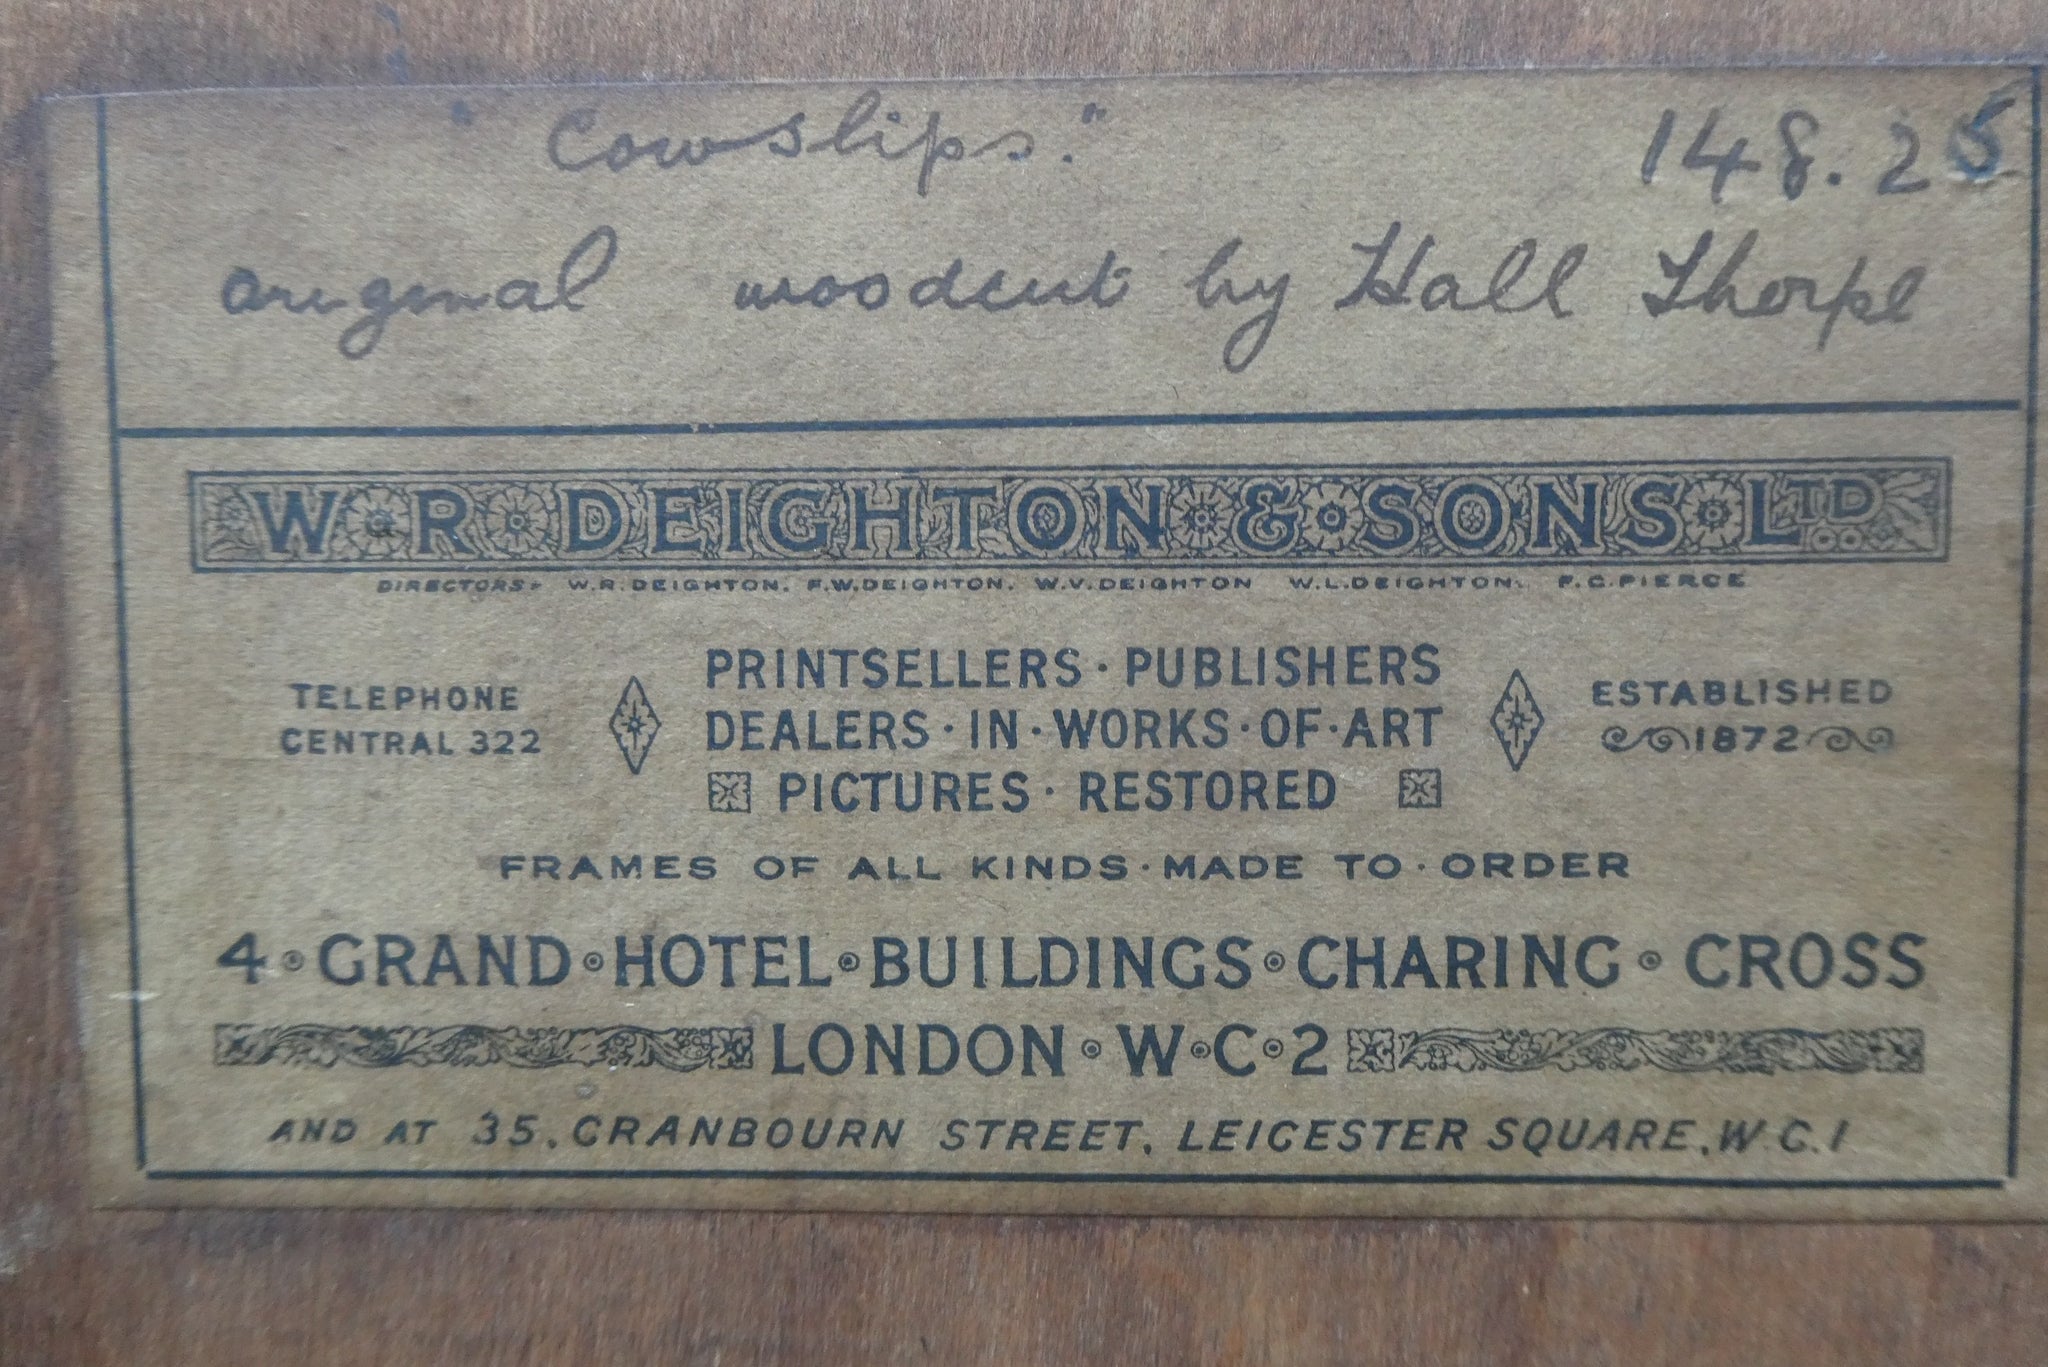 "Cowslips." 148.25
original woodcut by Hall Thorpe
W R DEIGHTON & SONS LTD
DIRECTORS- W.R.DEIGHTON. F.W.DEIGHTON. W.V.DEIGHTON W.L.DEIGHTON. F.C.PIERCE
TELEPHONE
CENTRAL 322
PRINTSELLERS · PUBLISHERS
DEALERS · IN · WORKS · OF · ART
PICTURES · RESTORED
ESTABLISHED
1872
FRAMES OF ALL KINDS · MADE TO · ORDER
4 · GRAND · HOTEL · BUILDINGS · CHARING · CROSS
LONDON · W · C · 2
AND AT 35, CRANBOURN STREET, LEICESTER SQUARE, W.C.1